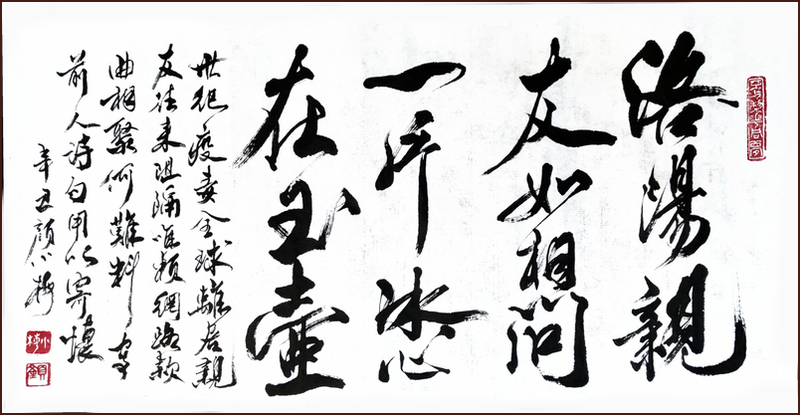 洛陽親
友如相問
一片冰心
在玉壺
世紀疫毒全球離居親
友往來阻隔唯賴網路款
曲相聚何難料
前人詩句用以寄懷
辛丑顏小梅
小梅
顏